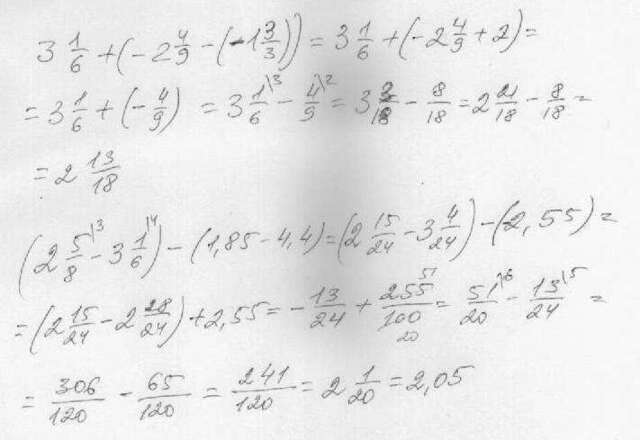 3 1/6 + (-2 4/9 - (-1 3/3)) = 3 1/6 + (-2 4/9 + 2) =
= 3 1/6 + (-4/9) = 3 1/6\3 - 4/9\2 = 3 3/18 - 8/18 = 2 21/18 - 8/18 =
= 2 13/18
(2 5/8\3 - 3 1/6\4) - (1,85 - 4,4) = (2 15/24 - 3 4/24) - (-2,55) =
= (2 15/24 - 2 28/24) + 2,55 = -13/24 + 255 51/100 20 = 51/20\6 - 13/24\5 =
= 306/120 - 65/120 = 241/120 = 2 1/20 = 2,05